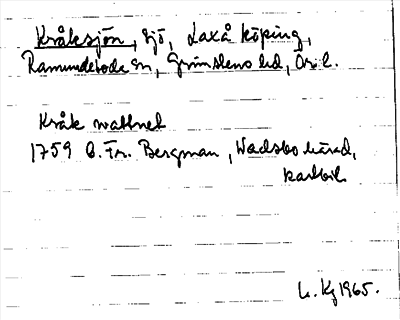 Kråksjön, sjö, Laxå köping,
Ramundeboda sn, Grimstens hd, Ör l.
Kråk wattnet
1759 C. Fr. Bergman, Wadsbo härad,
kartbil.
L. Kg 1965.